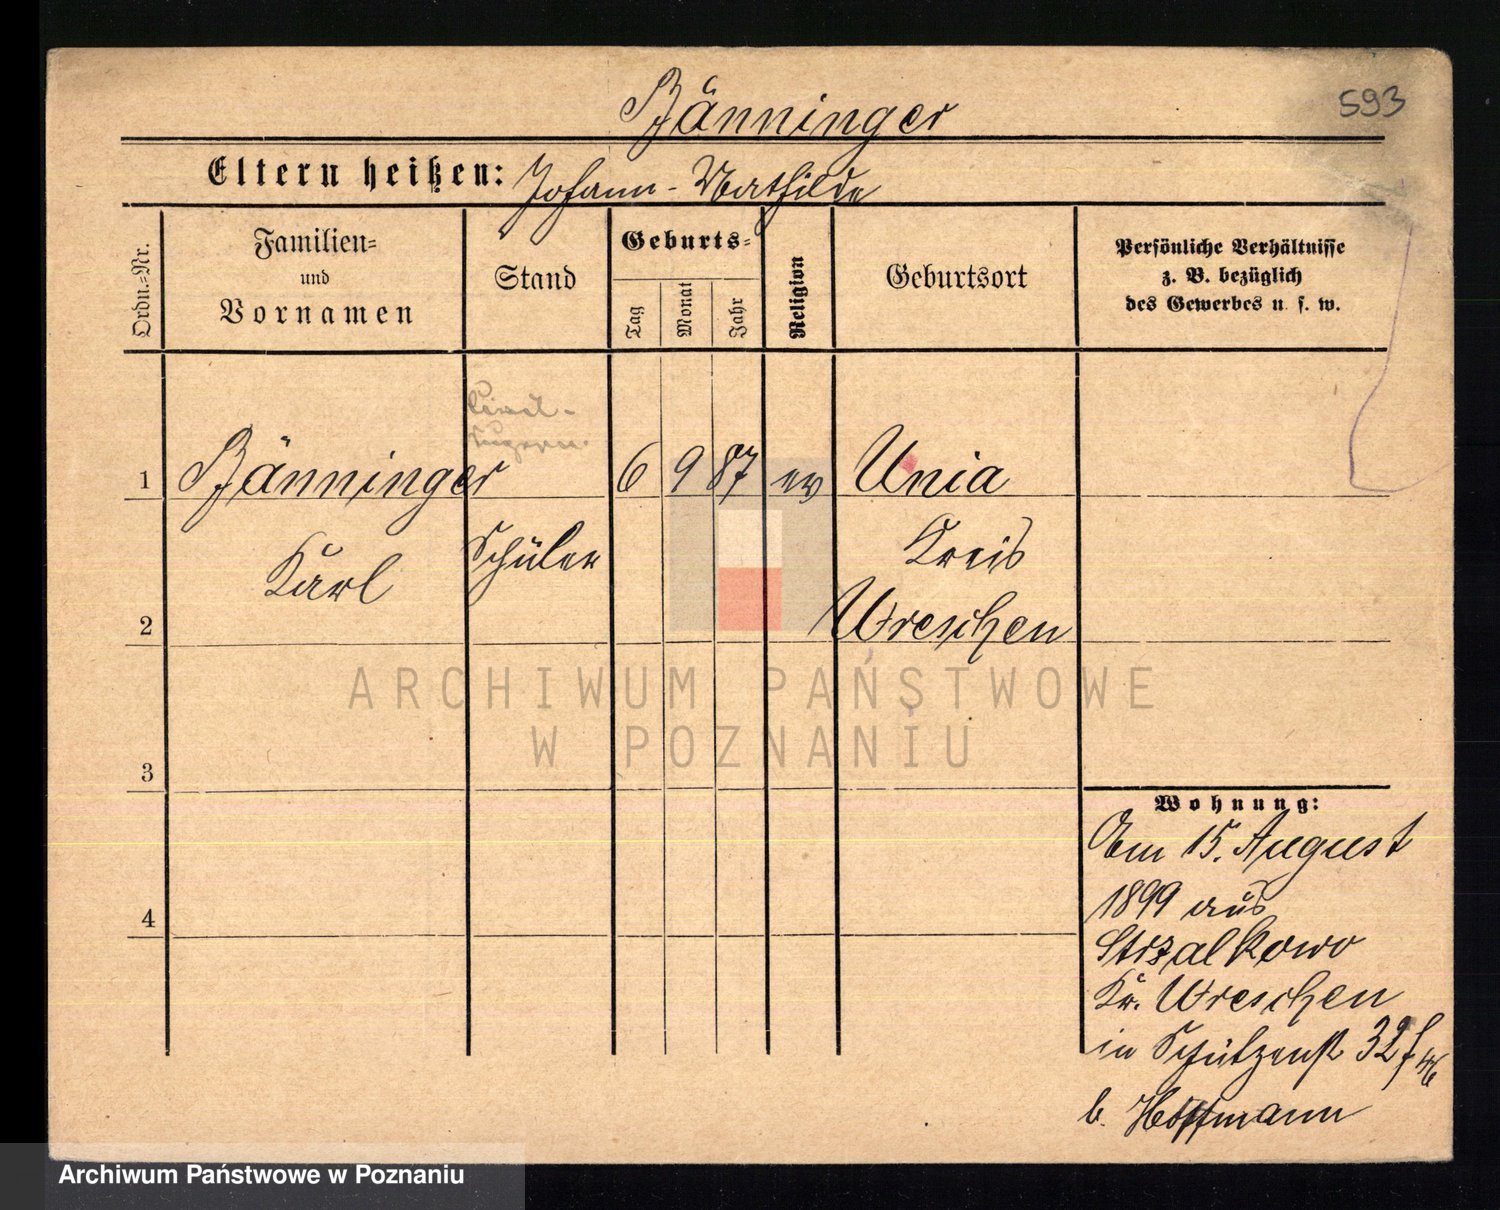 593
Bänninger
Eltern heißen: Johann - Mathilde
Ordn.-Nr.
Familien-
und
Vornamen
Stand
Geburts-
Tag
Monat
Jahr
Religion
Geburtsort
Persönliche Verhältnisse
z. B. bezüglich
des Gewerbes u. s. w.
1 Bänninger 6 9 87 ev Unia
Karl Schüler Kreis
2 Wreschen
3
4
Wohnung:
Am 15. August
1899 aus
Strzalkowo
Kr. Wreschen
in Schützenst 32
b. Hoffmann
ARCHIWUM PAŃSTWOWE
W POZNANIU
Archiwum Państwowe w Poznaniu